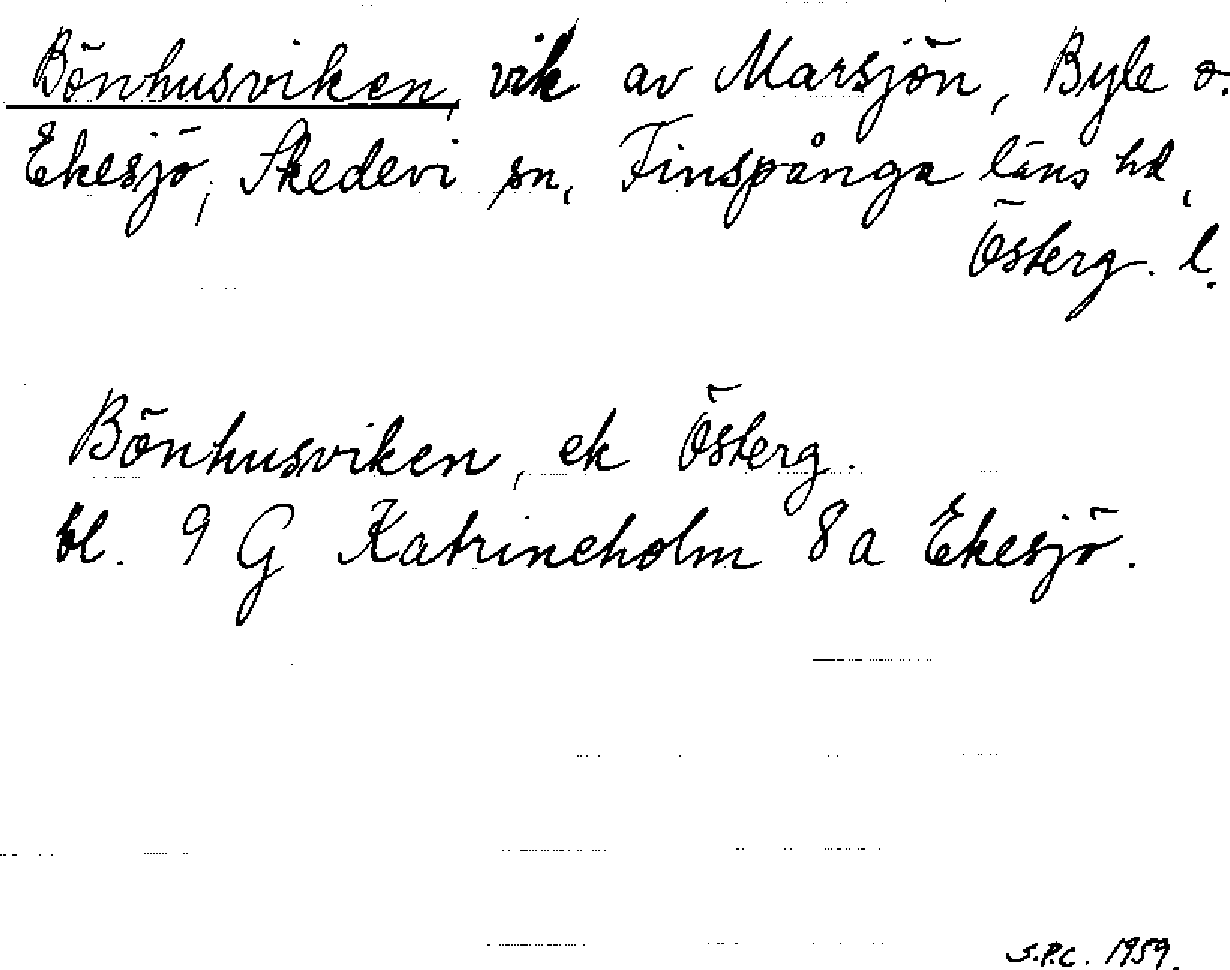 Bönhusviken, vik av Marsjön, Byle o.
Ekesjö, Skedevi sn, Finspånga läns hd,
Österg. l.
Bönhusviken, ek Österg.
bl. 9 G Katrineholm 8a Ekesjö.
S.P.C. 1959.